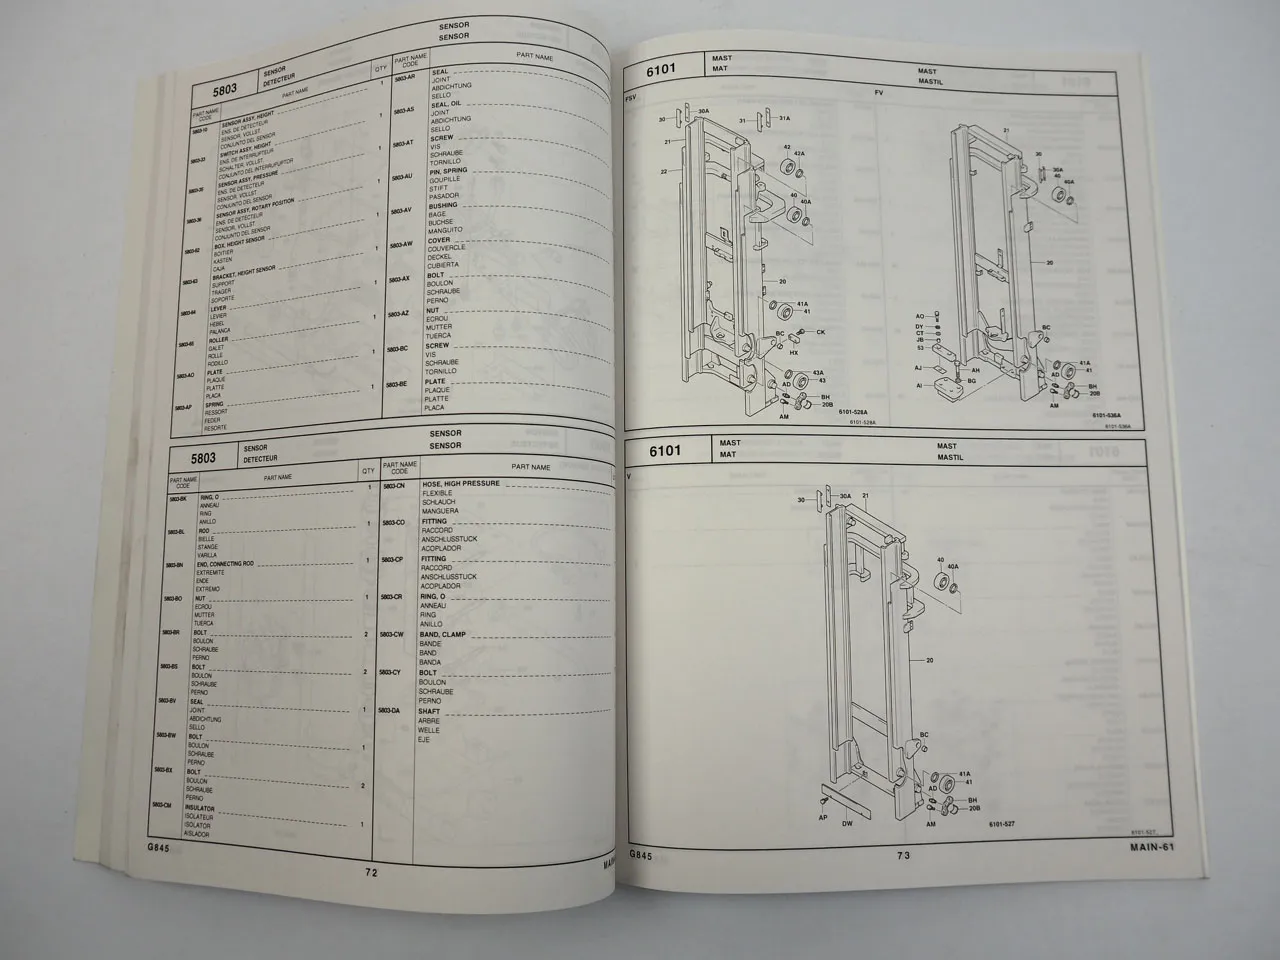 SENSOR
SENSOR
5803
SENSOR
DETECTEUR
PART NAME CODE
PART NAME
QTY
PART NAME CODE
PART NAME
5803-10
SENSOR ASSY, HEIGHT
1
ENS. DE DETECTEUR
SENSOR, VOLLST.
CONJUNTO DEL SENSOR
5803-23
SWITCH ASSY, HEIGHT
1
ENS. DE INTERRUPTEUR
SCHALTER, VOLLST.
CONJUNTO DEL INTERRUPTOR
SENSOR ASSY, PRESSURE
1
ENS. DE DETECTEUR
SENSOR, VOLLST.
CONJUNTO DEL SENSOR
SENSOR ASSY, ROTARY POSITION
1
ENS. DE DETECTEUR
SENSOR, VOLLST.
CONJUNTO DEL SENSOR
5803-62
BOX, HEIGHT SENSOR
1
BOITIER
KASTEN
CAJA
5803-63
BRACKET, HEIGHT SENSOR
1
SUPPORT
TRAGER
SOPORTE
5803-64
LEVER
1
LEVIER
HEBEL
PALANCA
5803-65
ROLLER
1
GALET
ROLLE
RODILLO
5803-AO
PLATE
1
PLAQUE
PLATTE
PLACA
5803-AP
SPRING
1
RESSORT
FEDER
RESORTE
5803-AR
SEAL
JOINT
ABDICHTUNG
SELLO
5803-AS
SEAL, OIL
JOINT
ABDICHTUNG
SELLO
5803-AT
SCREW
VIS
SCHRAUBE
TORNILLO
5803-AU
PIN, SPRING
GOUPILLE
STIFT
PASADOR
5803-AV
BUSHING
BAGE
BUCHSE
MANGUITO
5803-AW
COVER
COUVERCLE
DECKEL
CUBIERTA
5803-AX
BOLT
BOULON
SCHRAUBE
PERNO
5803-AZ
NUT
ECROU
MUTTER
TUERCA
5803-BC
SCREW
VIS
SCHRAUBE
TORNILLO
5803-BE
PLATE
PLAQUE
PLATTE
PLACA
5803
SENSOR
DETECTEUR
SENSOR
SENSOR
PART NAME CODE
PART NAME
QTY
PART NAME CODE
PART NAME
5803-BK
RING, O
1
ANNEAU
RING
ANILLO
5803-BL
ROD
1
BIELLE
STANGE
VARILLA
5803-BN
END, CONNECTING ROD
1
EXTREMITE
ENDE
EXTREMO
5803-BO
NUT
1
ECROU
MUTTER
TUERCA
5803-BR
BOLT
2
BOULON
SCHRAUBE
PERNO
5803-BS
BOLT
2
BOULON
SCHRAUBE
PERNO
5803-BV
SEAL
1
JOINT
ABDICHTUNG
SELLO
5803-BW
BOLT
1
BOULON
SCHRAUBE
PERNO
5803-BX
BOLT
2
BOULON
SCHRAUBE
PERNO
5803-CM
INSULATOR
1
ISOLATEUR
ISOLATOR
AISLADOR
5803-CN
HOSE, HIGH PRESSURE
FLEXIBLE
SCHLAUCH
MANGUERA
5803-CO
FITTING
RACCORD
ANSCHLUSSTUCK
ACOPLADOR
5803-CP
FITTING
RACCORD
ANSCHLUSSTUCK
ACOPLADOR
5803-CR
RING, O
ANNEAU
RING
ANILLO
5803-CW
BAND, CLAMP
BANDE
BAND
BANDA
5803-CY
BOLT
BOULON
SCHRAUBE
PERNO
5803-DA
SHAFT
ARBRE
WELLE
EJE
G845
72
6101
MAST
MAT
MAST
MASTIL
FSV
FV
30
30A
31
31A
21
22
42
42A
40
40A
20
41A
41
BC
CK
HX
43A
43
AD
BH
20B
AM
6101-528A
6101-528A
21
30
30A
40
40A
20
AO
DY
CT
JB
53
AJ
AI
AH
BG
BC
41A
41
AD
BH
20B
AM
6101-536A
6101-536A
6101
MAST
MAT
MAST
MASTIL
V
30
30A
21
40
40A
20
BC
41A
41
AD
BH
20B
AM
AP
DW
6101-527
6101-527
G845
73
MAIN-61